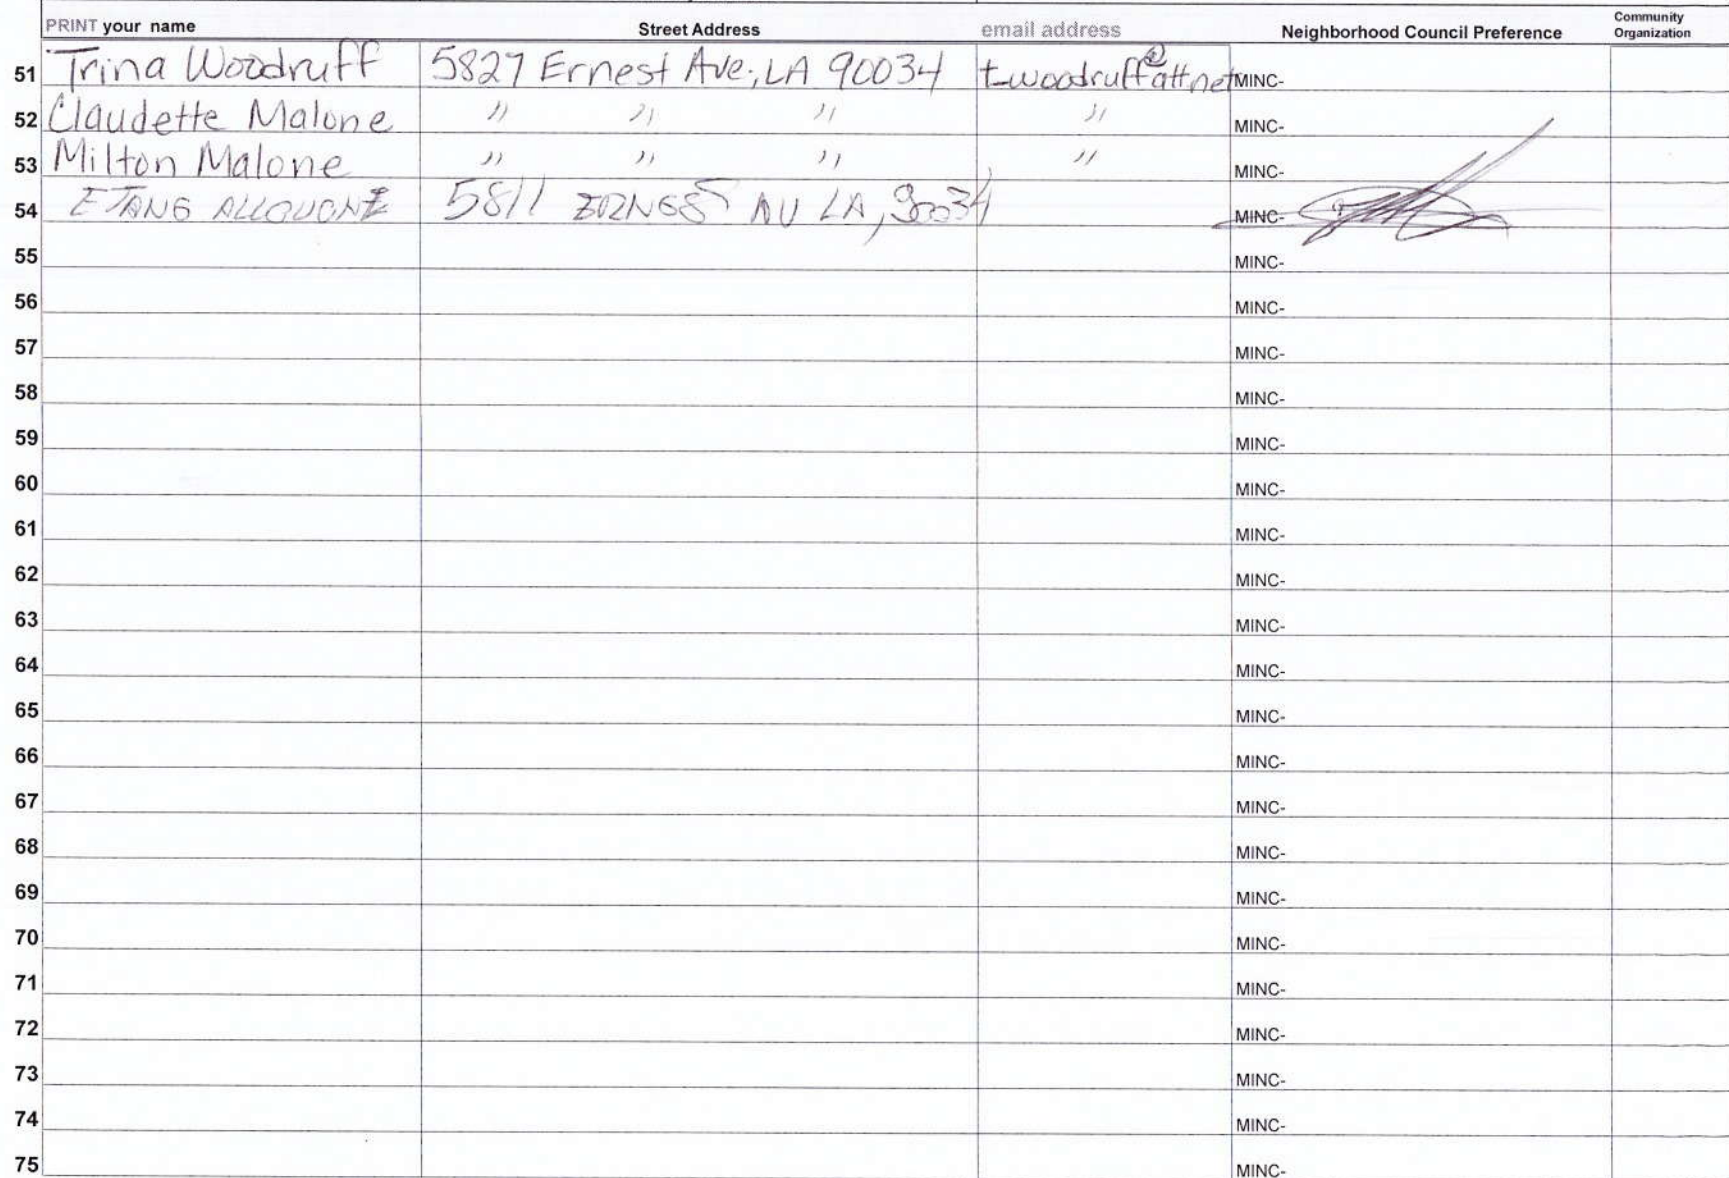 PRINT your name Street Address email address Neighborhood Council Preference Community Organization
51 Trina Woodruff 5827 Ernest Ave., LA 90034 t-woodruff@att.net MINC-
52 Claudette Malone " " " " MINC-
53 Milton Malone " " " " MINC-
54 5811 AV LA, 90034 MINC-
55 MINC-
56 MINC-
57 MINC-
58 MINC-
59 MINC-
60 MINC-
61 MINC-
62 MINC-
63 MINC-
64 MINC-
65 MINC-
66 MINC-
67 MINC-
68 MINC-
69 MINC-
70 MINC-
71 MINC-
72 MINC-
73 MINC-
74 MINC-
75 MINC-